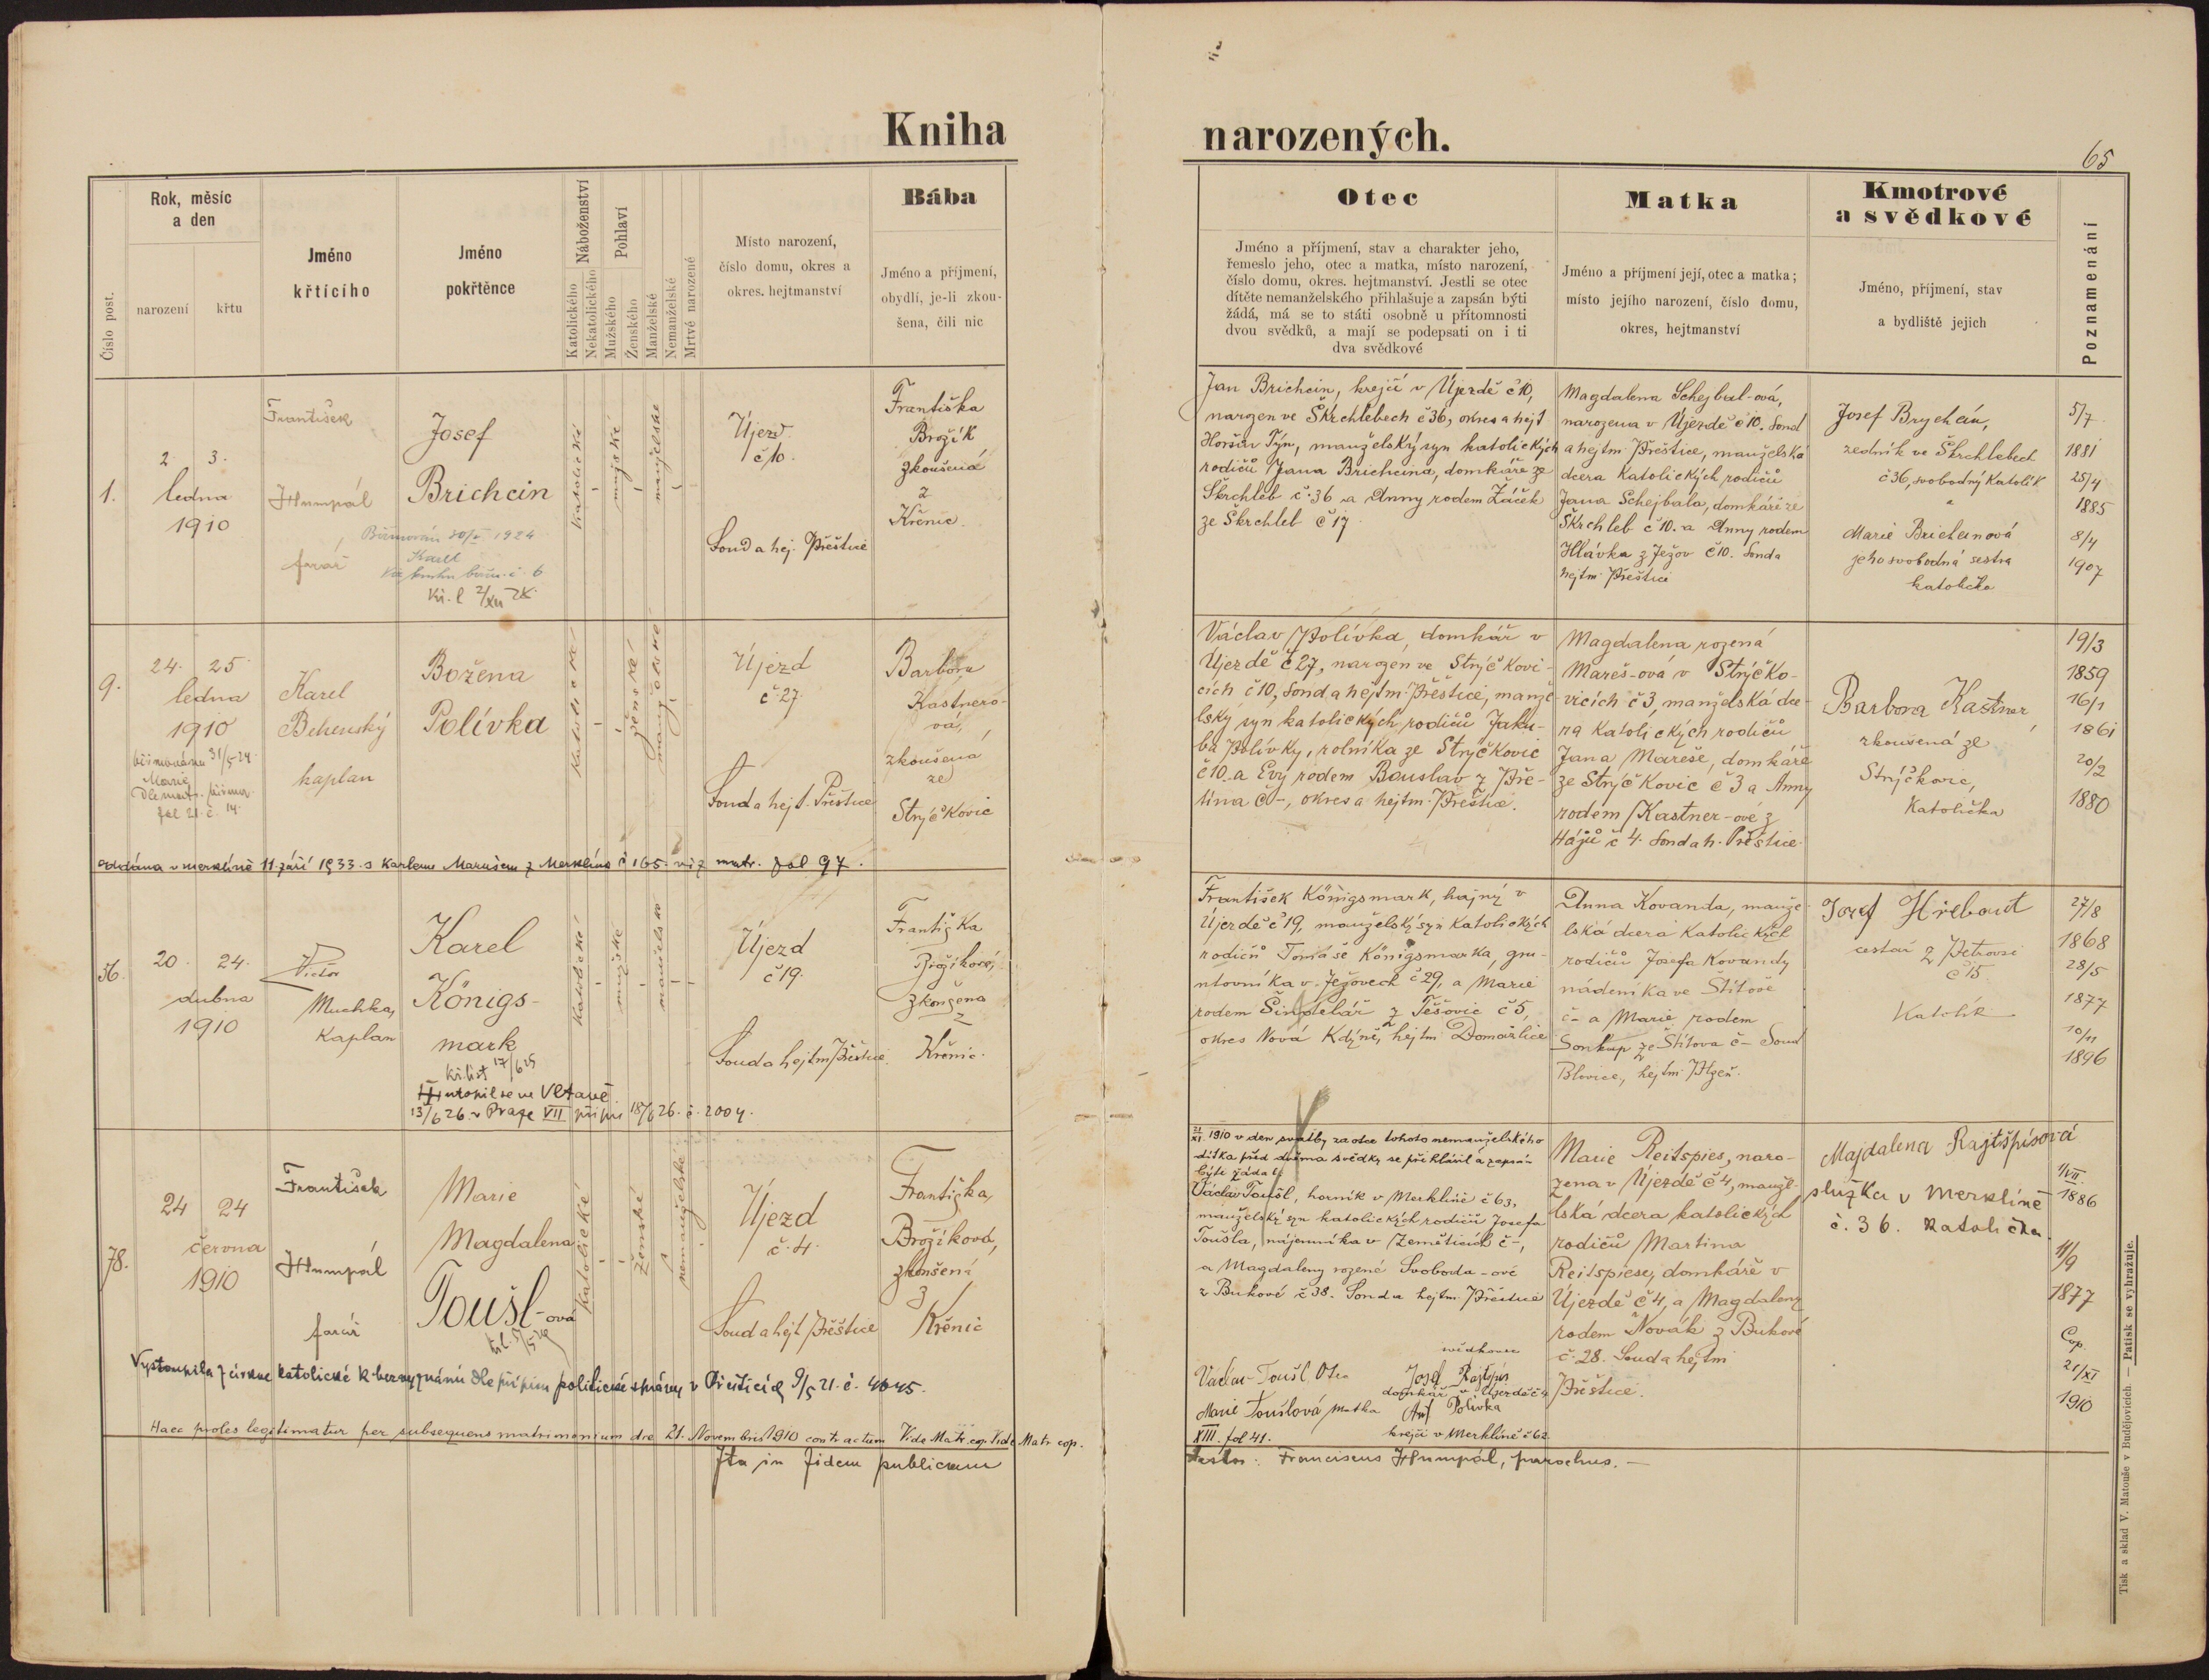 Kniha narozených.
65
Číslo post.
Rok, měsíc
a den
narození
křtu
Jméno
křtícího
Jméno
pokřtěnce
Náboženství
Katolického
Nekatolického
Pohlaví
Mužského
Ženského
Manželské
Nemanželské
Mrtvé narozené
Místo narození,
číslo domu, okres a
okres. hejtmanství
Bába
Jméno a příjmení,
obydlí, je-li zkou-
šena, čili nic
Otec
Jméno a příjmení, stav a charakter jeho,
řemeslo jeho, otec a matka, místo narození,
číslo domu, okres. hejtmanství. Jestli se otec
dítěte nemanželského přihlašuje a zapsán býti
žádá, má se to státi osobně u přítomnosti
dvou svědků, a mají se podepsati on i ti
dva svědkové
Matka
Jméno a příjmení její, otec a matka;
místo jejího narození, číslo domu,
okres, hejtmanství
Kmotrové
a svědkové
Jméno, příjmení, stav
a bydliště jejich
Poznamenání
1.
2. 3.
ledna
1910
František
Humpál
farář
Josef
Brichcin
Biřmován 1924
Karel
Kř. l 2/XII 28.
katolické
mužské
manželské
Újezd
č 10.
Soud a hej. Přeštice
Františka
Brožík
zkoušená
z
Křenic.
Jan Brichcin, krejčí v Újezdě č 10,
narozen ve Škrchlebech č 36, okres a hejt
Horšův Týn, manželský syn katolických
rodičů Jana Brichcina, domkáře ze
Škrchleb č. 36 a Anny rodem Žáček
ze Škrchleb č 17
Magdalena Schejbal-ová,
narozena v Újezdě č 10. Soud
a hejtm. Přeštice, manželská
dcera katolických rodičů
Jana Schejbala, domkáře ze
Škrchleb č 10. a Anny rodem
Hlávka z Ježov č 10. Soud a
hejtm. Přeštice
Josef Brychcín,
zedník ve Škrchlebech
č 36, svobodný katolík
a
Marie Brichcinová
jeho svobodná sestra
katolička
5/7
1881
25/4
1885
8/4
1907
9.
24. 25
ledna
1910
biřmována 31/5 24.
Marie
fol 21. č. 14.
Karel
Behenský
kaplan
Božena
Polívka
katolické
ženské
manželské
Újezd
č. 27.
Soud a hejt. Přeštice
Barbora
Kastnero-
vá,
zkoušená
ze
Strýčkovic
Václav Polívka, domkář v
Újezdě č 27, narozen ve Strýčkovi-
cích č 10, soud a hejtm. Přeštice, manže-
lský syn katolických rodičů Jaku-
ba Polívky, rolníka ze Strýčkovic
č 10. a Evy rodem Bouslav z Pře-
tína č -, okres a hejtm. Přeštice.
Magdalena rozená
Mareš-ová v Strýčko-
vicích č 3, manželská dce-
ra katolických rodičů
Jana Mareše, domkáře
ze Strýčkovic č 3 a Anny
rodem Kastner-ové z
Hájů č 4. Soud a h. Přeštice.
Barbora Kastner
zkoušená ze
Strýčkovic,
katolička
19/3
1859
16/1
1861
20/2
1880
oddána v Merklíně 11. září 1933. s Karlem Marušem z Merklína č 165. viz matr. fol 97.
36.
20. 24.
dubna
1910
Victor
Muchka,
kaplan
Karel
Königs-
mark
kř. list 17/6 25
utopil se ve Vltavě
13/6 26. v Praze VII přípis 18/6 26. č. 2004.
katolické
mužské
manželské
Újezd
č 19.
Soud a hejtm Přeštice
Františka
Brožíková,
zkoušená
z
Křenic.
František Königsmark, hajný v
Újezdě č 19, manželský syn katolických
rodičů Tomáše Königsmarka, gru-
ntovníka v Ježovech č 29, a Marie
rodem Šindelář z Těšovic č 5,
okres Nová Kdýně, hejtm. Domažlice
Anna Kovanda, manže-
lská dcera katolických
rodičů Josefa Kovandy
nádeníka ve Štítově
č - a Marie rodem
Soukup ze Štítova č - Soud
Blovice, hejtm. Plzeň.
Josef Hřebout
cestář z Petrovic
č 15.
Katolík
27/8
1868
28/5
1877
10/11
1896
78.
24 24
června
1910
František
Humpál
farář
Marie
Magdalena
Toušl-ová
katolické
ženské
nemanželské
Újezd
č. 4.
Soud a hejt Přeštice
Františka
Brožíková,
zkoušená
z
Křenic
21/XI 1910 v den svatby za otce tohoto nemanželského
dítka před dvěma svědky se přihlásil a zapsán
býti žádal:
Václav Toušl, horník v Merklíně č 63,
manželský syn katolických rodičů Josefa
Toušla, nájemníka v Zemětících č -,
a Magdaleny rozené Svoboda-ové
z Bukové č 38. Soud a hejtm. Přeštice
svědkové
Václav Toušl. Otec
Josef Rajtšpís
domkář v Újezdě č 4
Marie Toušlová matka
Ant. Polívka
krejčí v Merklíně č 62.
XIII. fol 41.
Marie Reitspies, naro-
zena v Újezdě č 4, manže-
lská dcera katolických
rodičů Martina
Reitspiese, domkáře v
Újezdě č 4, a Magdaleny
rodem Novák z Bukové
č. 28. Soud a hejtm
Přeštice.
Majdalena Rajtšpísová
služka v Merklíně
č. 36. katolička
1/VII.
1886
11/9
1877
Cop.
21/XI
1910
Vystoupila z církve katolické k bezvyznání dle přípisu politické správy v Přešticích 9/5 21. č. 4645.
Haec proles legitimatur per subsequens matrimonium die 21. Novembris 1910 contractum Vide Matr. cop. Vide Matr cop.
Ita in fidem publicam testor: Franciscus Humpál, parochus. —
Tisk a sklad V. Matouše v Budějovicích. — Patisk se vyhražuje.